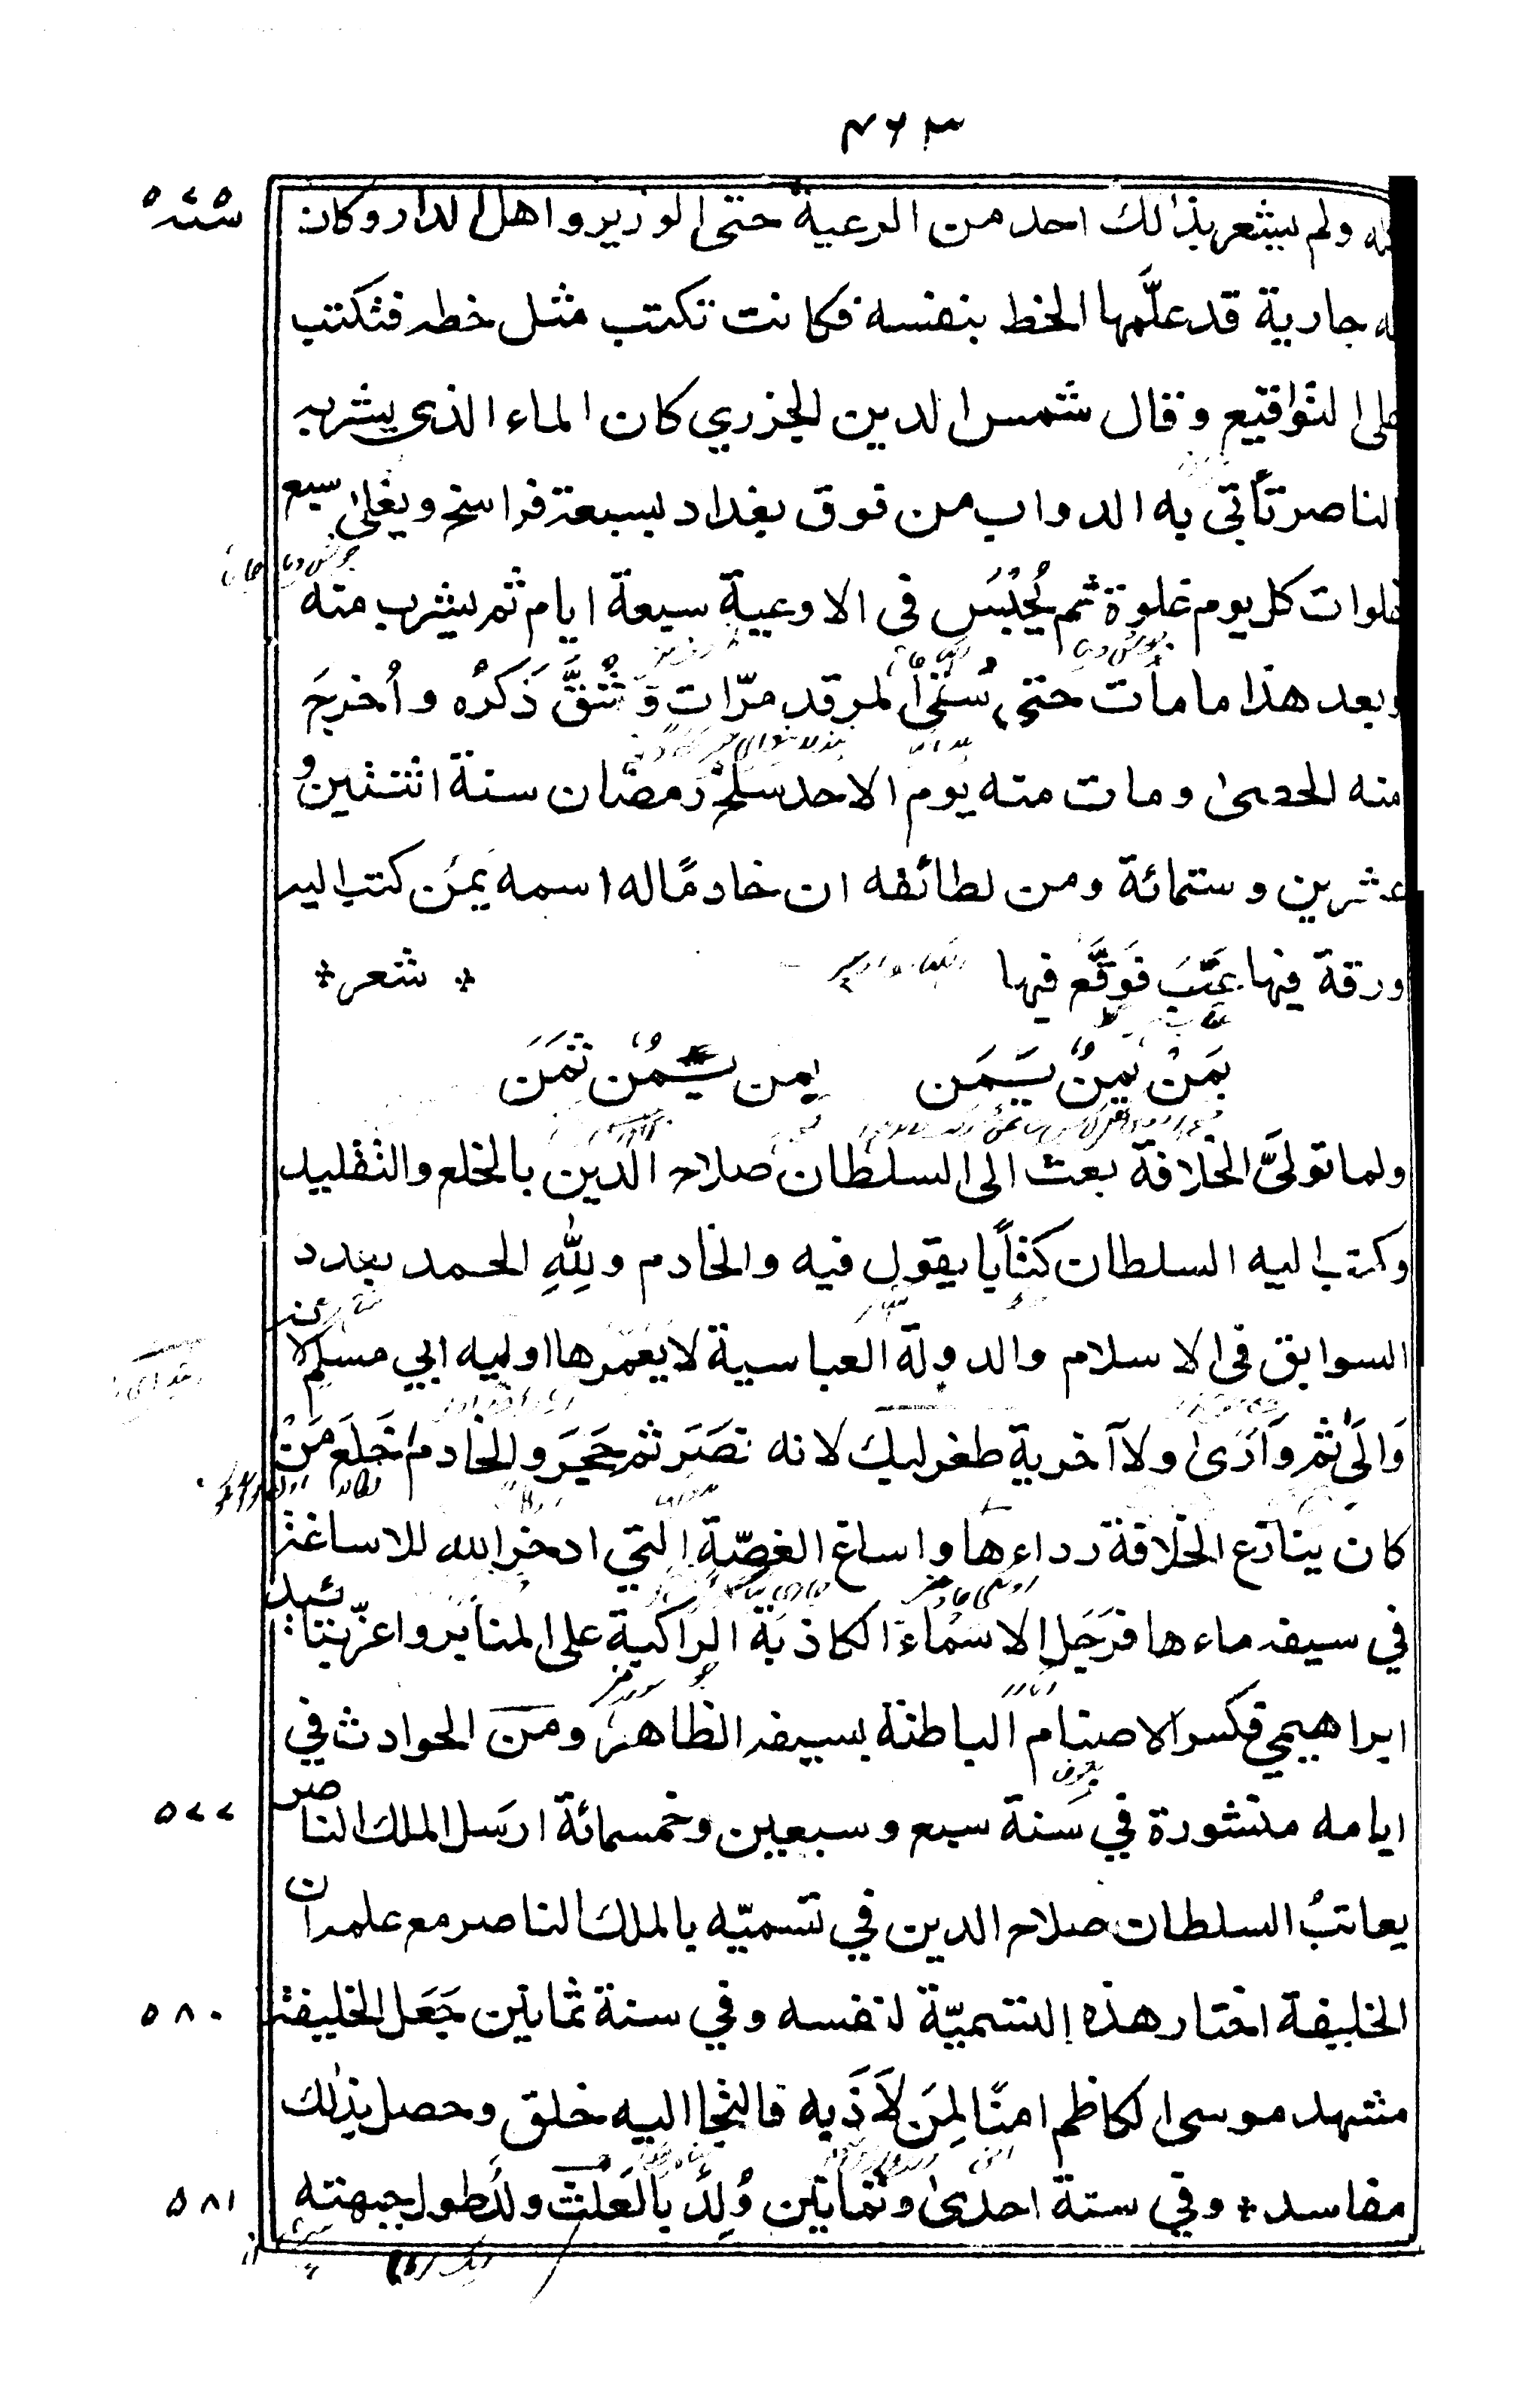 ٤٦٣
سنة ٥٧٥
له ولم يشعر بذلك احد من الرعية حتى الوزير واهل الدار وكان
له جارية قد علَّمها الخط بنفسه فكانت تكتب مثل خطه فتكتب
على التواقيع وقال شمس الدين الجزري كان الماء الذى يشربه
الناصر تأتى به الدواب من فوق بغداد بسبعة فراسخ ويغلى سبع
غلوات كل يوم غلوة ثم يُحْبَسُ فى الاوعية سبعة ايام ثم يشرب منه
وبعد هذا مامات حتى سُقى المرقد مرّات وَشُقَّ ذَكَرُه وأخرِجَ
منه الحصى ومات منه يوم الاحد سلخ رمضان سنة اثنتين و
عشرين وستمائة ومن لطائفه ان خادمًا له اسمه يَمَن كتب اليه
ورقة فيها عَتَبَ فَوَقَّعَ فيها * شعر *
بمَنْ يَمنُ يسَمَن يمن يسَمُن ثمَنَ
ولما تولىَّ الخلافة بعث الى السلطان صلاح الدين بالخلع والتقليد
وكتب اليه السلطان كتاًبا يقول فيه والخادم وللهِ الحمد يعدد
السوابق فى الاسلام والدولة العباسية لايعمرها اولية ابي مسلم لانه
وَالَى ثم وَارَى ولا آخرية طغرلبك لانه نصَرَ ثم حَجَرَ والخادم خَلَعَ مَنْ
كان ينازع الخلافة رداءها واساغ الغصّة التى ادخر الله للاساغة
في سيفه ماءها فرَجَّل الاسَماءَ الكاذبَة الراكبة على المنابر واعزّ بتائيد
ابراهيمي فكسر الاصنام الباطنة بسيفه الظاهر ومن الحوادث في
٥٧٧
ايامه منشورة في سنة سبع وسبعين وخمسمائة ارسَل الملك الناصر
يعاتبُ السلطان صلاح الدين في تسميّه بالملك الناصر مع علمه ان
٥٨٠
الخليفة اختار هذه التسميّة لنفسه وفي سنة ثمانين جَعَل الخليفة
مشهد موسى الكاظم امنًا لِمَن لَاذَ به فالتجا اليه خلق وحصل بذلك
٥٨١
مفاسد * وفي سنة احدى وثمانين وُلِدَ بالعَلَث ولَد طول جبهته